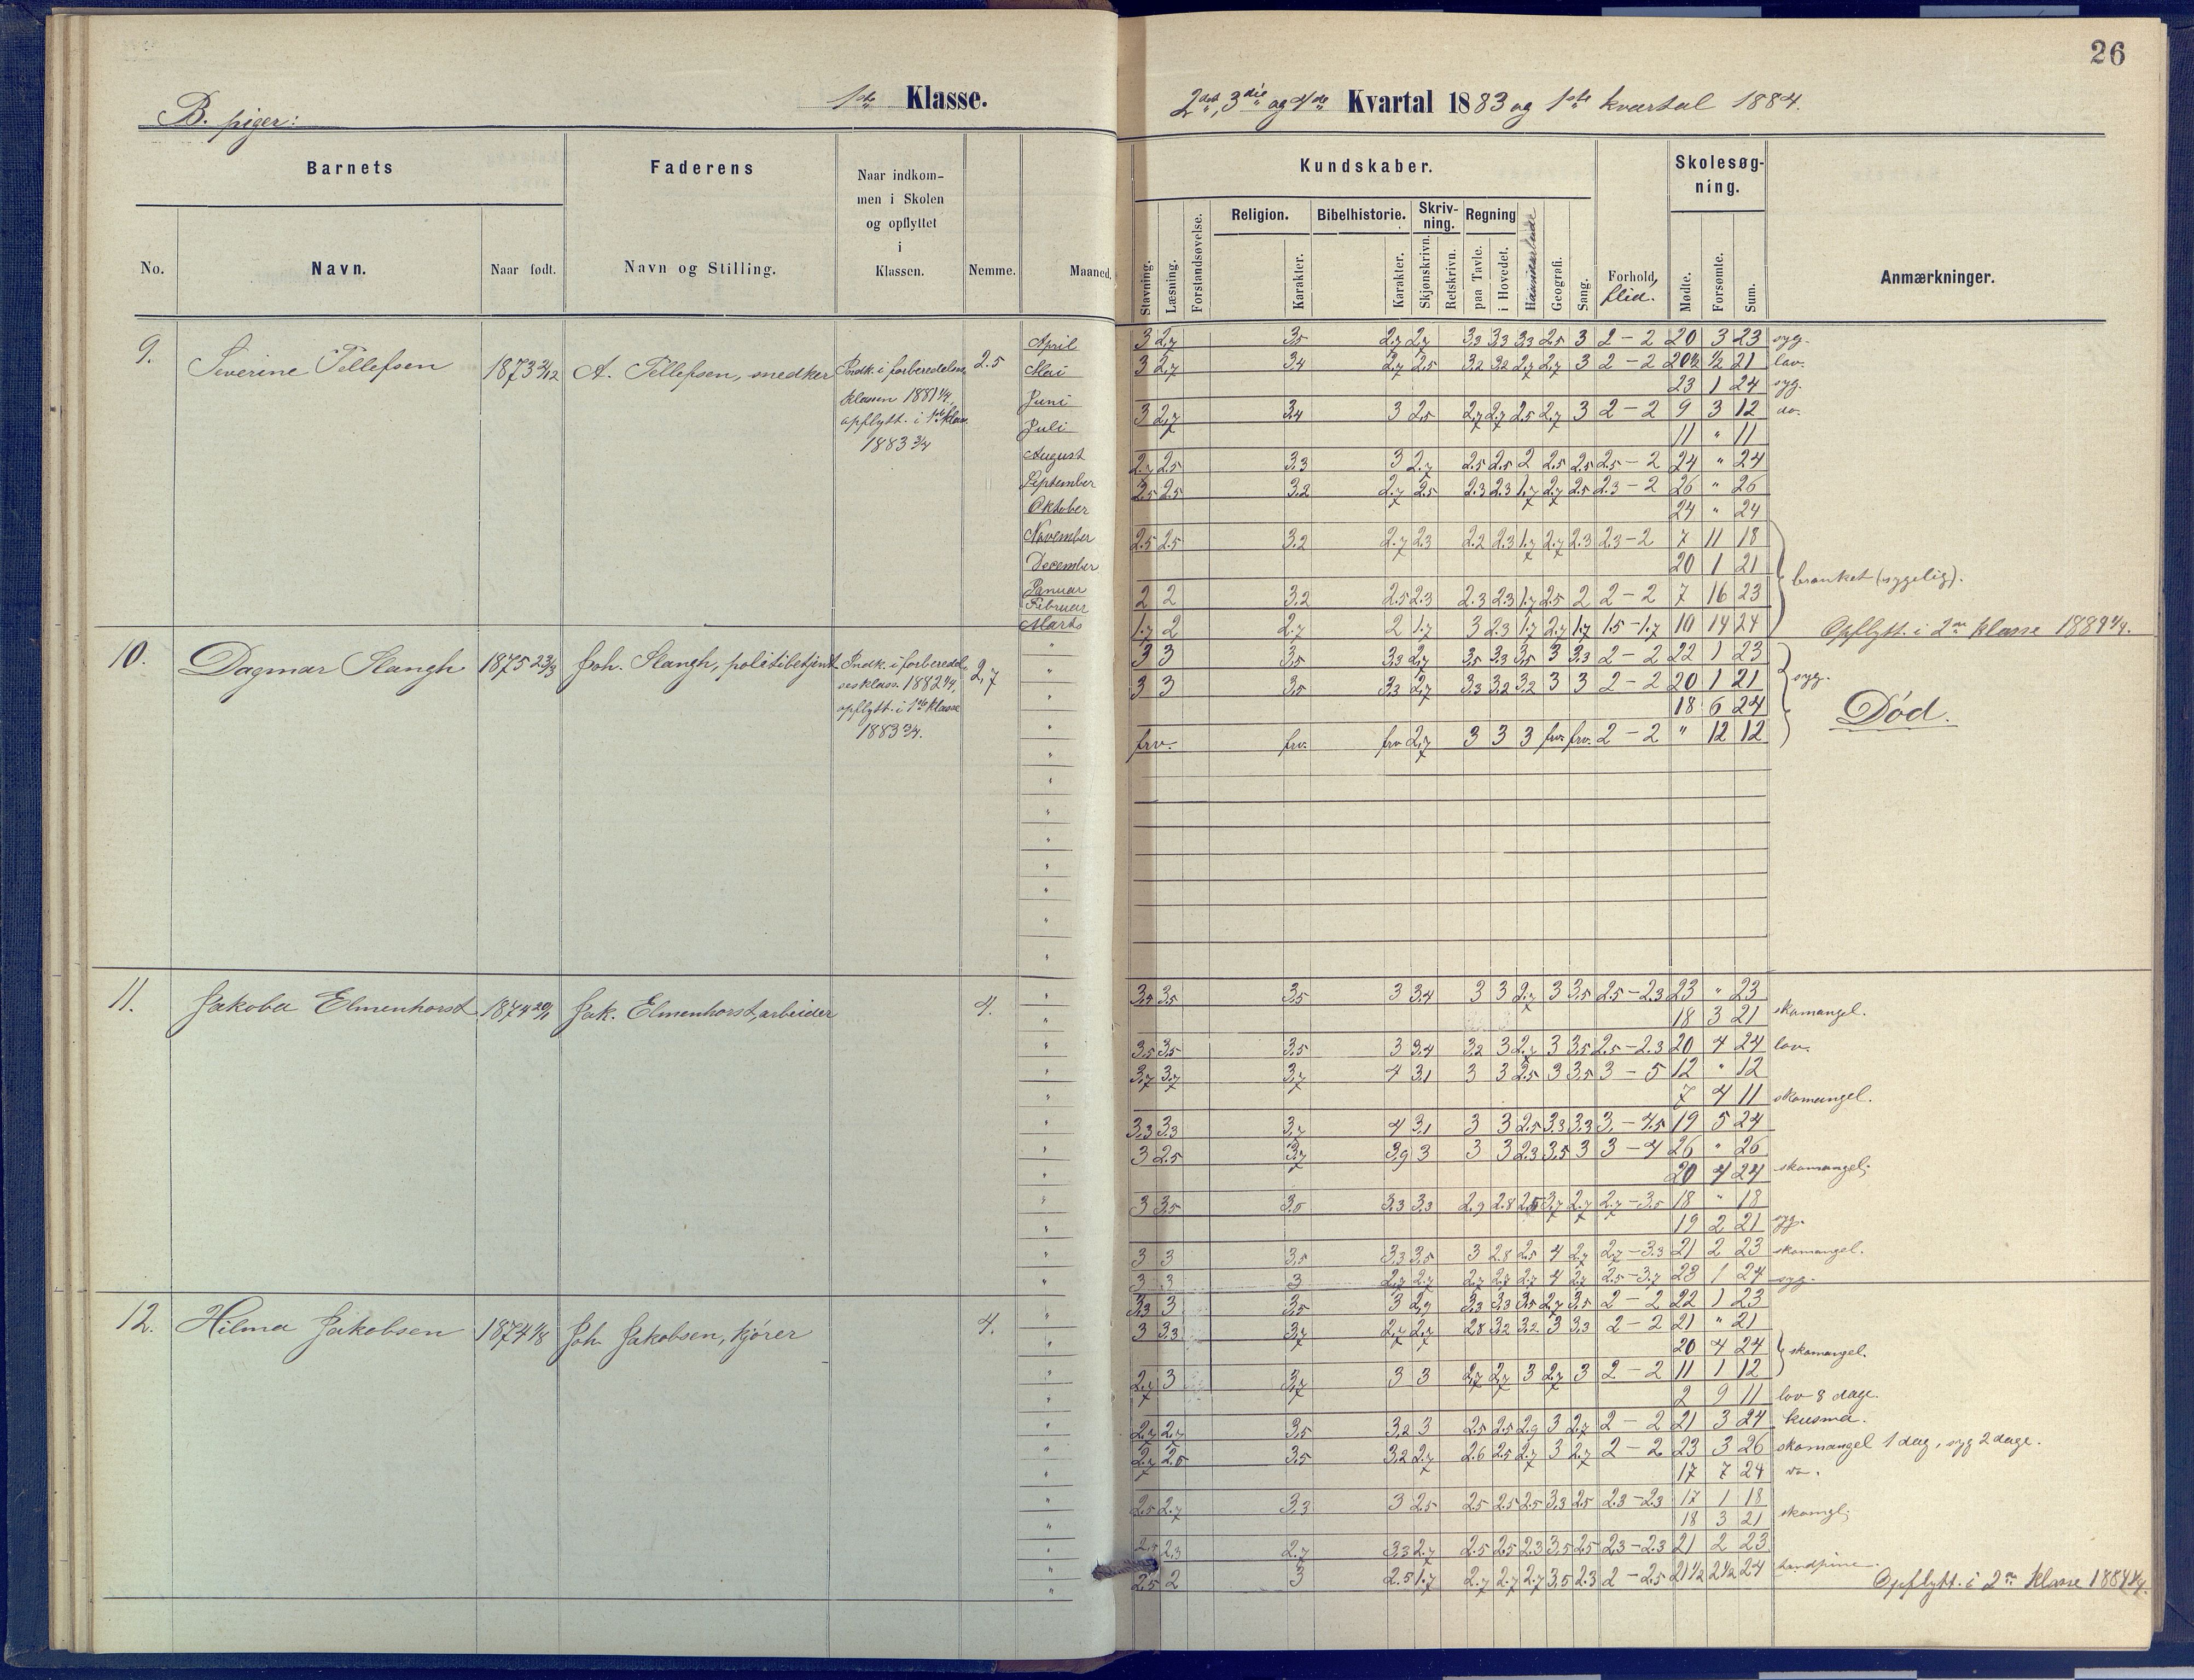 26
B. piger:
1ste Klasse.
2det, 3die og 4de Kvartal 1883 og 1ste kvartal 1884.
Barnets
Faderens
Naar indkom-
men i Skolen
og opflyttet
i
Klassen.
No.
Navn.
Naar født.
Navn og Stilling.
Nemme.
Maaned.
Kundskaber.
Skolesøg-
ning.
Religion.
Bibelhistorie.
Skriv-
ning.
Regning
Stavning.
Læsning.
Forstandsøvelse.
Karakter.
Karakter.
Skjønskrivn.
Retskrivn.
paa Tavle.
i Hovedet.
Haandarbeide
Geografi.
Sang.
Forhold,
flid.
Mødte.
Forsømte.
Sum.
Anmærkninger.
9. Severine Tellefsen 1873 2/12 A. Tellefsen, snedker
Indk. i forberedelses
klassen 1881 1/4,
opflytt. i 1ste klas.
1883 3/4
2.5
April 3 2,7 3,5 2,7 2,7 3,3 3,3 3,3 2,5 3 2 – 2 20 3 23 syg.
Mai 3 2,7 3,4 2,7 2,5 3,2 3,2 2,7 2,7 3 2 – 2 20½ ½ 21 lov.
Juni 23 1 24 syg.
Juli 3 2,7 3,4 3 2,5 2,7 2,7 2,5 2,7 3 2 – 2 9 3 12 do.
August 11 " 11
September 2.7 2.5 3.3 3 2.7 2.5 2.5 2 2.5 2.5 2.5 – 2 24 " 24
Oktober 2.5 2.5 3.2 2.7 2.5 2.3 2.3 1.7 2.7 2.5 2.3 – 2 26 " 26
November 24 " 24
December 2.5 2.5 3.2 2.7 2.3 2.2 2.3 1.7 2.7 2.3 2.3 – 2 7 11 18
Januar 20 1 21
Februar 2 2 3.2 2.5 2.3 2.3 2.3 1.7 2.5 2 2 – 2 7 16 23
Marts 1.7 2 2.7 2 1.7 3 2.3 1.7 2.7 1.7 1.5 – 1.7 10 14 24
(sygelig).
Opflytt. i 2den klasse 1884 1/4.
10. Dagmar Slangh 1875 23/3 Joh. Slangh, politibetjent
Indk. i forberedel-
sesklass. 1882 1/4,
opflytt. i 1ste klasse
1883 3/4.
2,7
3 3 3,5 3,3 2,7 3,5 3,3 3,5 3 3,3 2 – 2 22 1 23
3 3 3,5 3,3 2,7 3,3 3,2 3,2 3 3 2 – 2 20 1 21 syg.
18 6 24
frv. frv. frv 2,7 3 3 3 frv. frv. 2 – 2 " 12 12
Død.
11. Jakoba Elmenhorst 1874 20/1 Jak. Elmenhorst, arbeider 4.
3,5 3,5 3,5 3 3,4 3 3 2,7 3 3,5 2.5 – 2.3 23 " 23
18 3 21 skomangel.
3,5 3,5 3,5 3 3,4 3,2 3 2,7 3 3,5 2.5 – 2.3 20 4 24 lov.
3,7 3,7 3,7 4 3,1 3 3 2.5 3 3,5 3 – 5 12 " 12
7 4 11 skomangel.
3,3 3,3 3,7 4 3,1 3 3 2.5 3.3 3.3 3. – 4.5 19 5 24
3 2.5 3,7 3,9 3 3 3 2.3 3.5 3 3 – 4 26 " 26
20 4 24 skomangel;
3 3,5 3,5 3.3 3.3 2.9 2.8 2.5 3,7 2.7 2.7 – 3.5 18 " 18
19 2 21 syg.
3 3 3,5 3,3 3,5 3 2.8 2.5 4 2.7 2.7 – 3.3 21 2 23 skomangel.
3 3 3 2.7 2.7 2.7 2.7 2.7 4 2.7 2.5 – 3.7 23 1 24 syg.
12. Hilma Jakobsen 1874 1/8 Joh. Jakobsen, kjører 4.
3,3 3 3,5 3 2,9 3,3 3,3 3,5 2,7 3,5 2 – 2 22 1 23
3 3,3 3,7 2,7 2,7 2,8 3,2 3,2 3 3,3 2 – 2 21 " 21
20 4 24 skomangel.
2,7 3 3,7 3 3 2,7 2,7 3 2,7 3 2 – 2 11 1 12
2 9 11 lov 8 dage.
2.7 2.7 3,5 3,2 3 2.5 2.5 2.9 3 2.7 2 – 2 21 3 24 kusma.
2.7 2.5 3,5 3,2 2.7 2.6 2.5 2.7 3 2.7 2 – 2 23 3 26 skomangel 1 dag, syg 2 dage.
17 7 24 do.
2.5 2.7 3,3 3 2.5 2.5 2.5 2.5 3.3 2.5 2.3 – 2.3 17 1 18
18 3 21 skomgl;
2.7 2.3 2.7 3.3 2.7 2.5 2.5 2.3 3.5 2.5 2.3 – 2.3 21 2 23
2.5 2 3 2.5 1.7 2.7 2.7 2.7 3.5 2.3 2 – 2.5 21½ 2½ 24 tandpine.
Opflytt. i 2den klasse 1884 1/4.